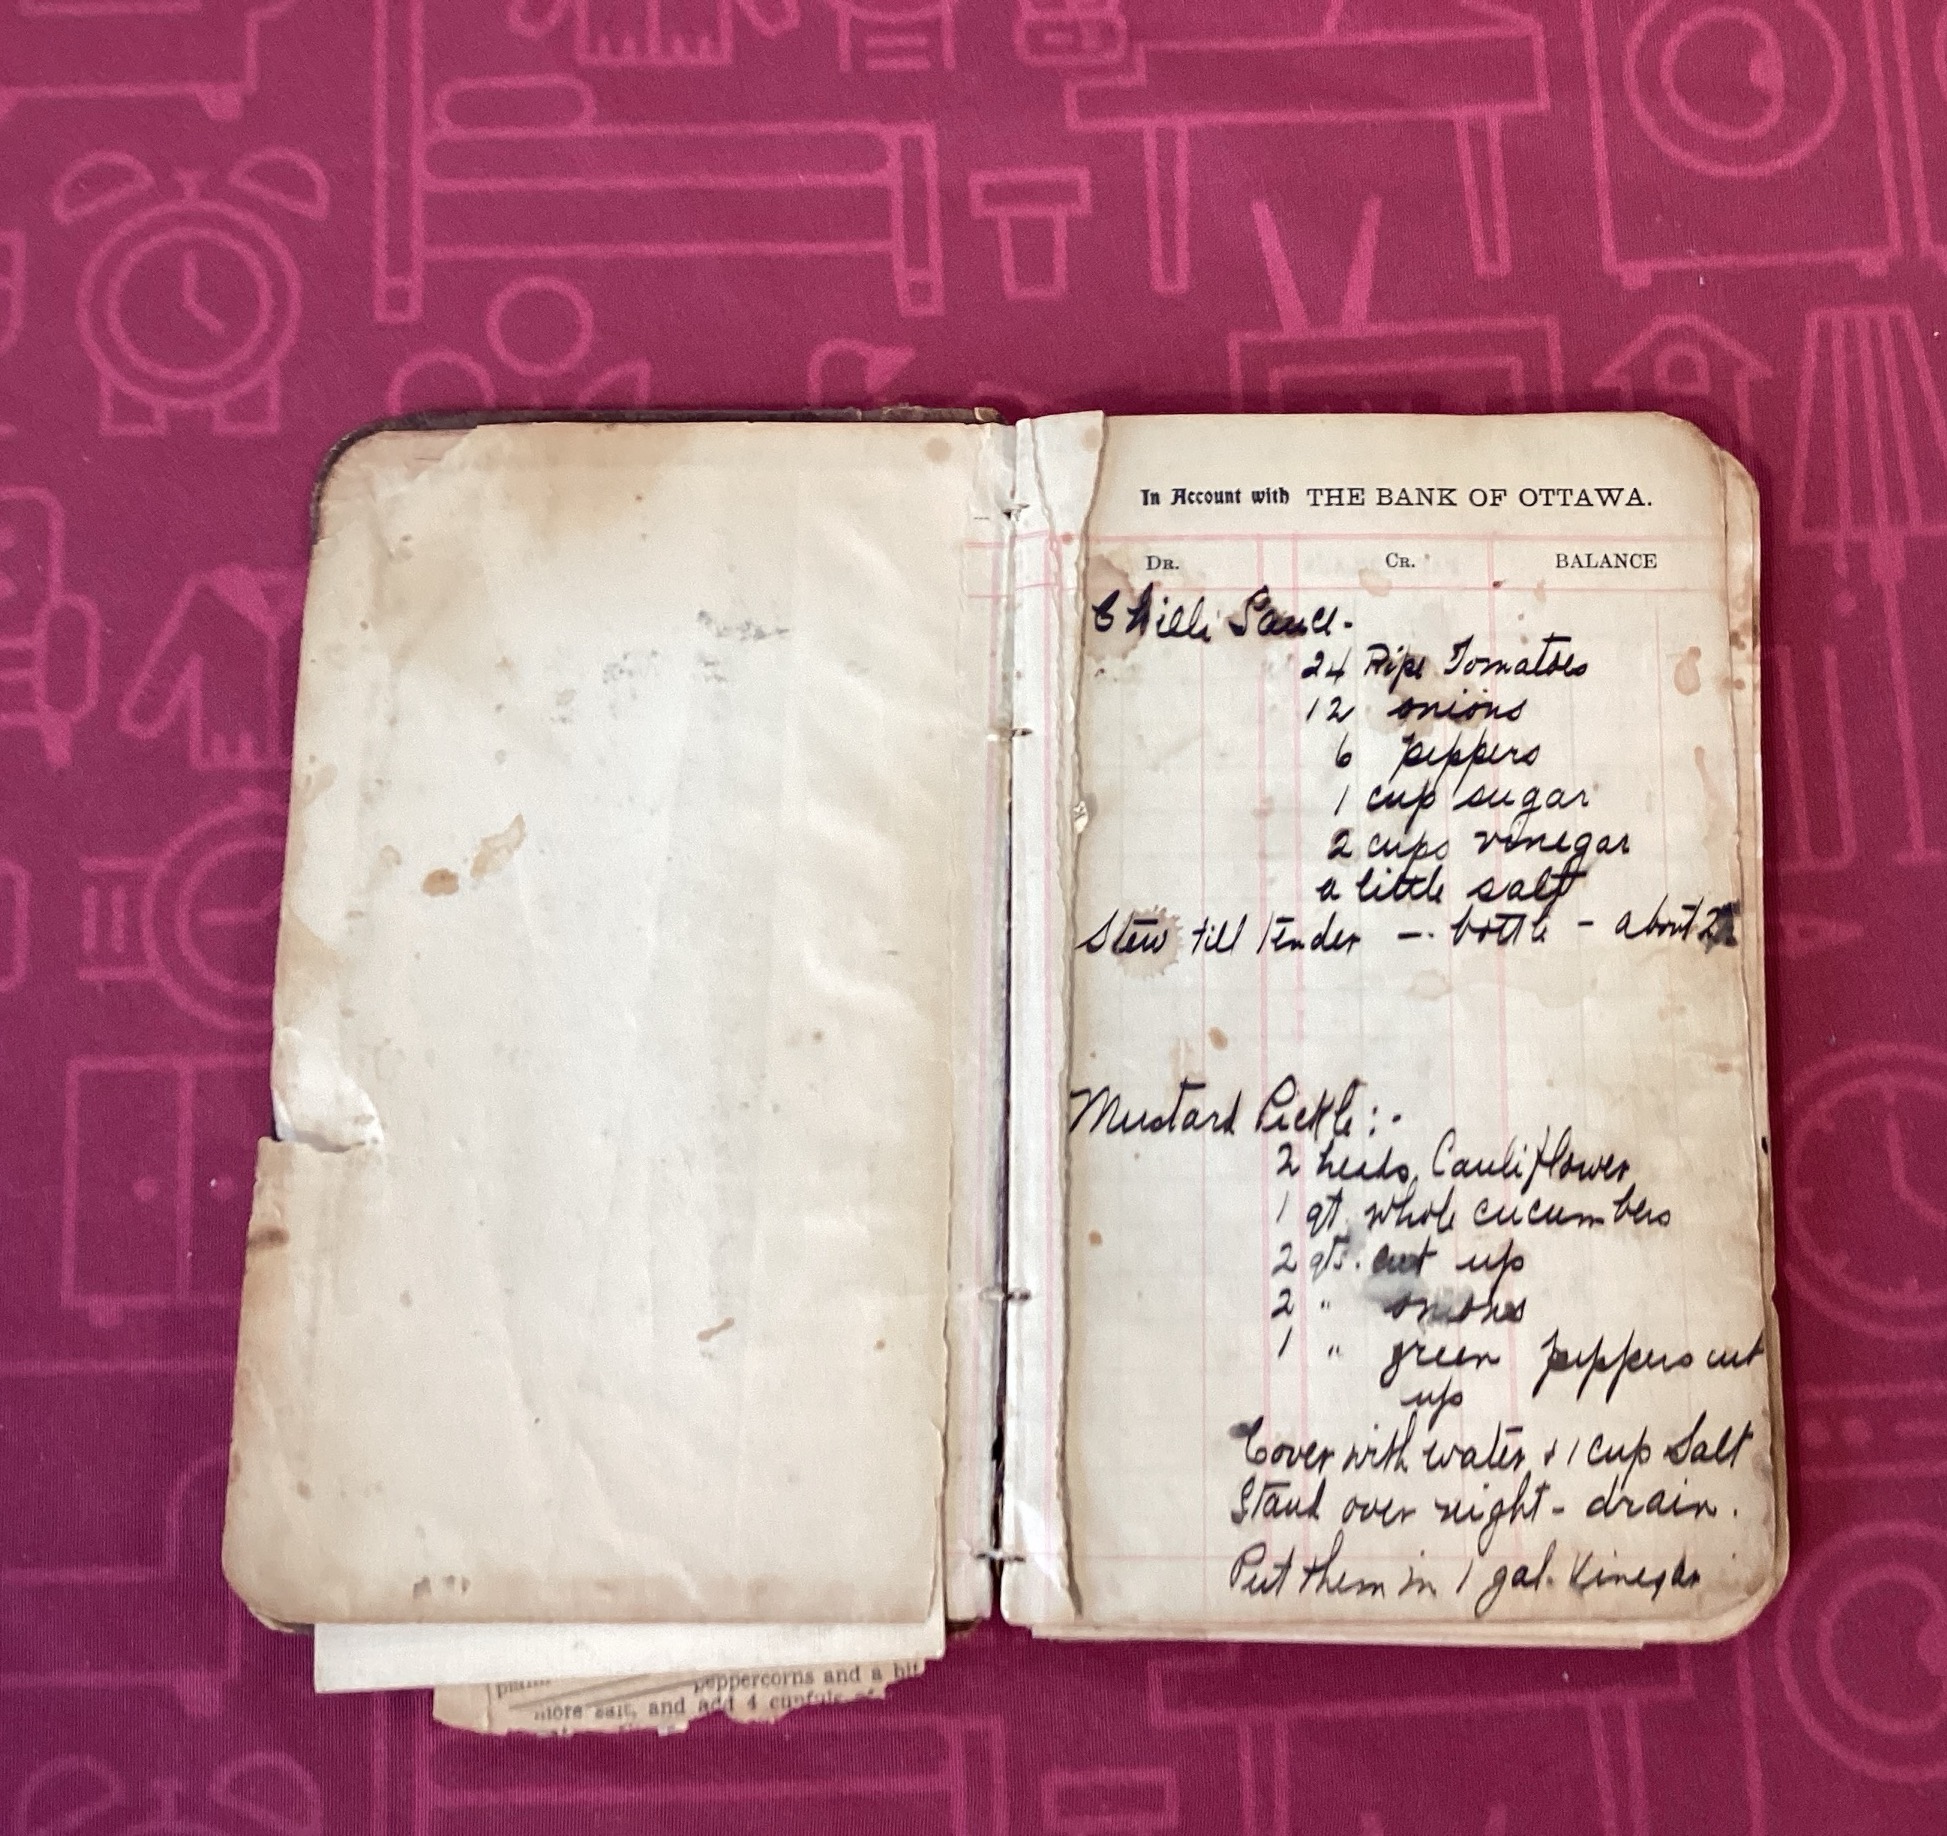 In Account with THE BANK OF OTTAWA.
DR. CR. BALANCE
Chilli Sauce-
24 Ripe Tomatoes
12 onions
6 peppers
1 cup sugar
2 cups vinegar
a little salt
Stew till tender - bottle - about 2
Mustard Pickle:-
2 heads Cauliflower
1 qt. whole cucumbers
2 qts. cut up
2 " onions
1 " green peppers cut
up
Cover with water & 1 cup Salt
Stand over night - drain.
Put them in 1 gal. Vinegar
peppercorns and a bit
more salt, and add 4 cupfuls of